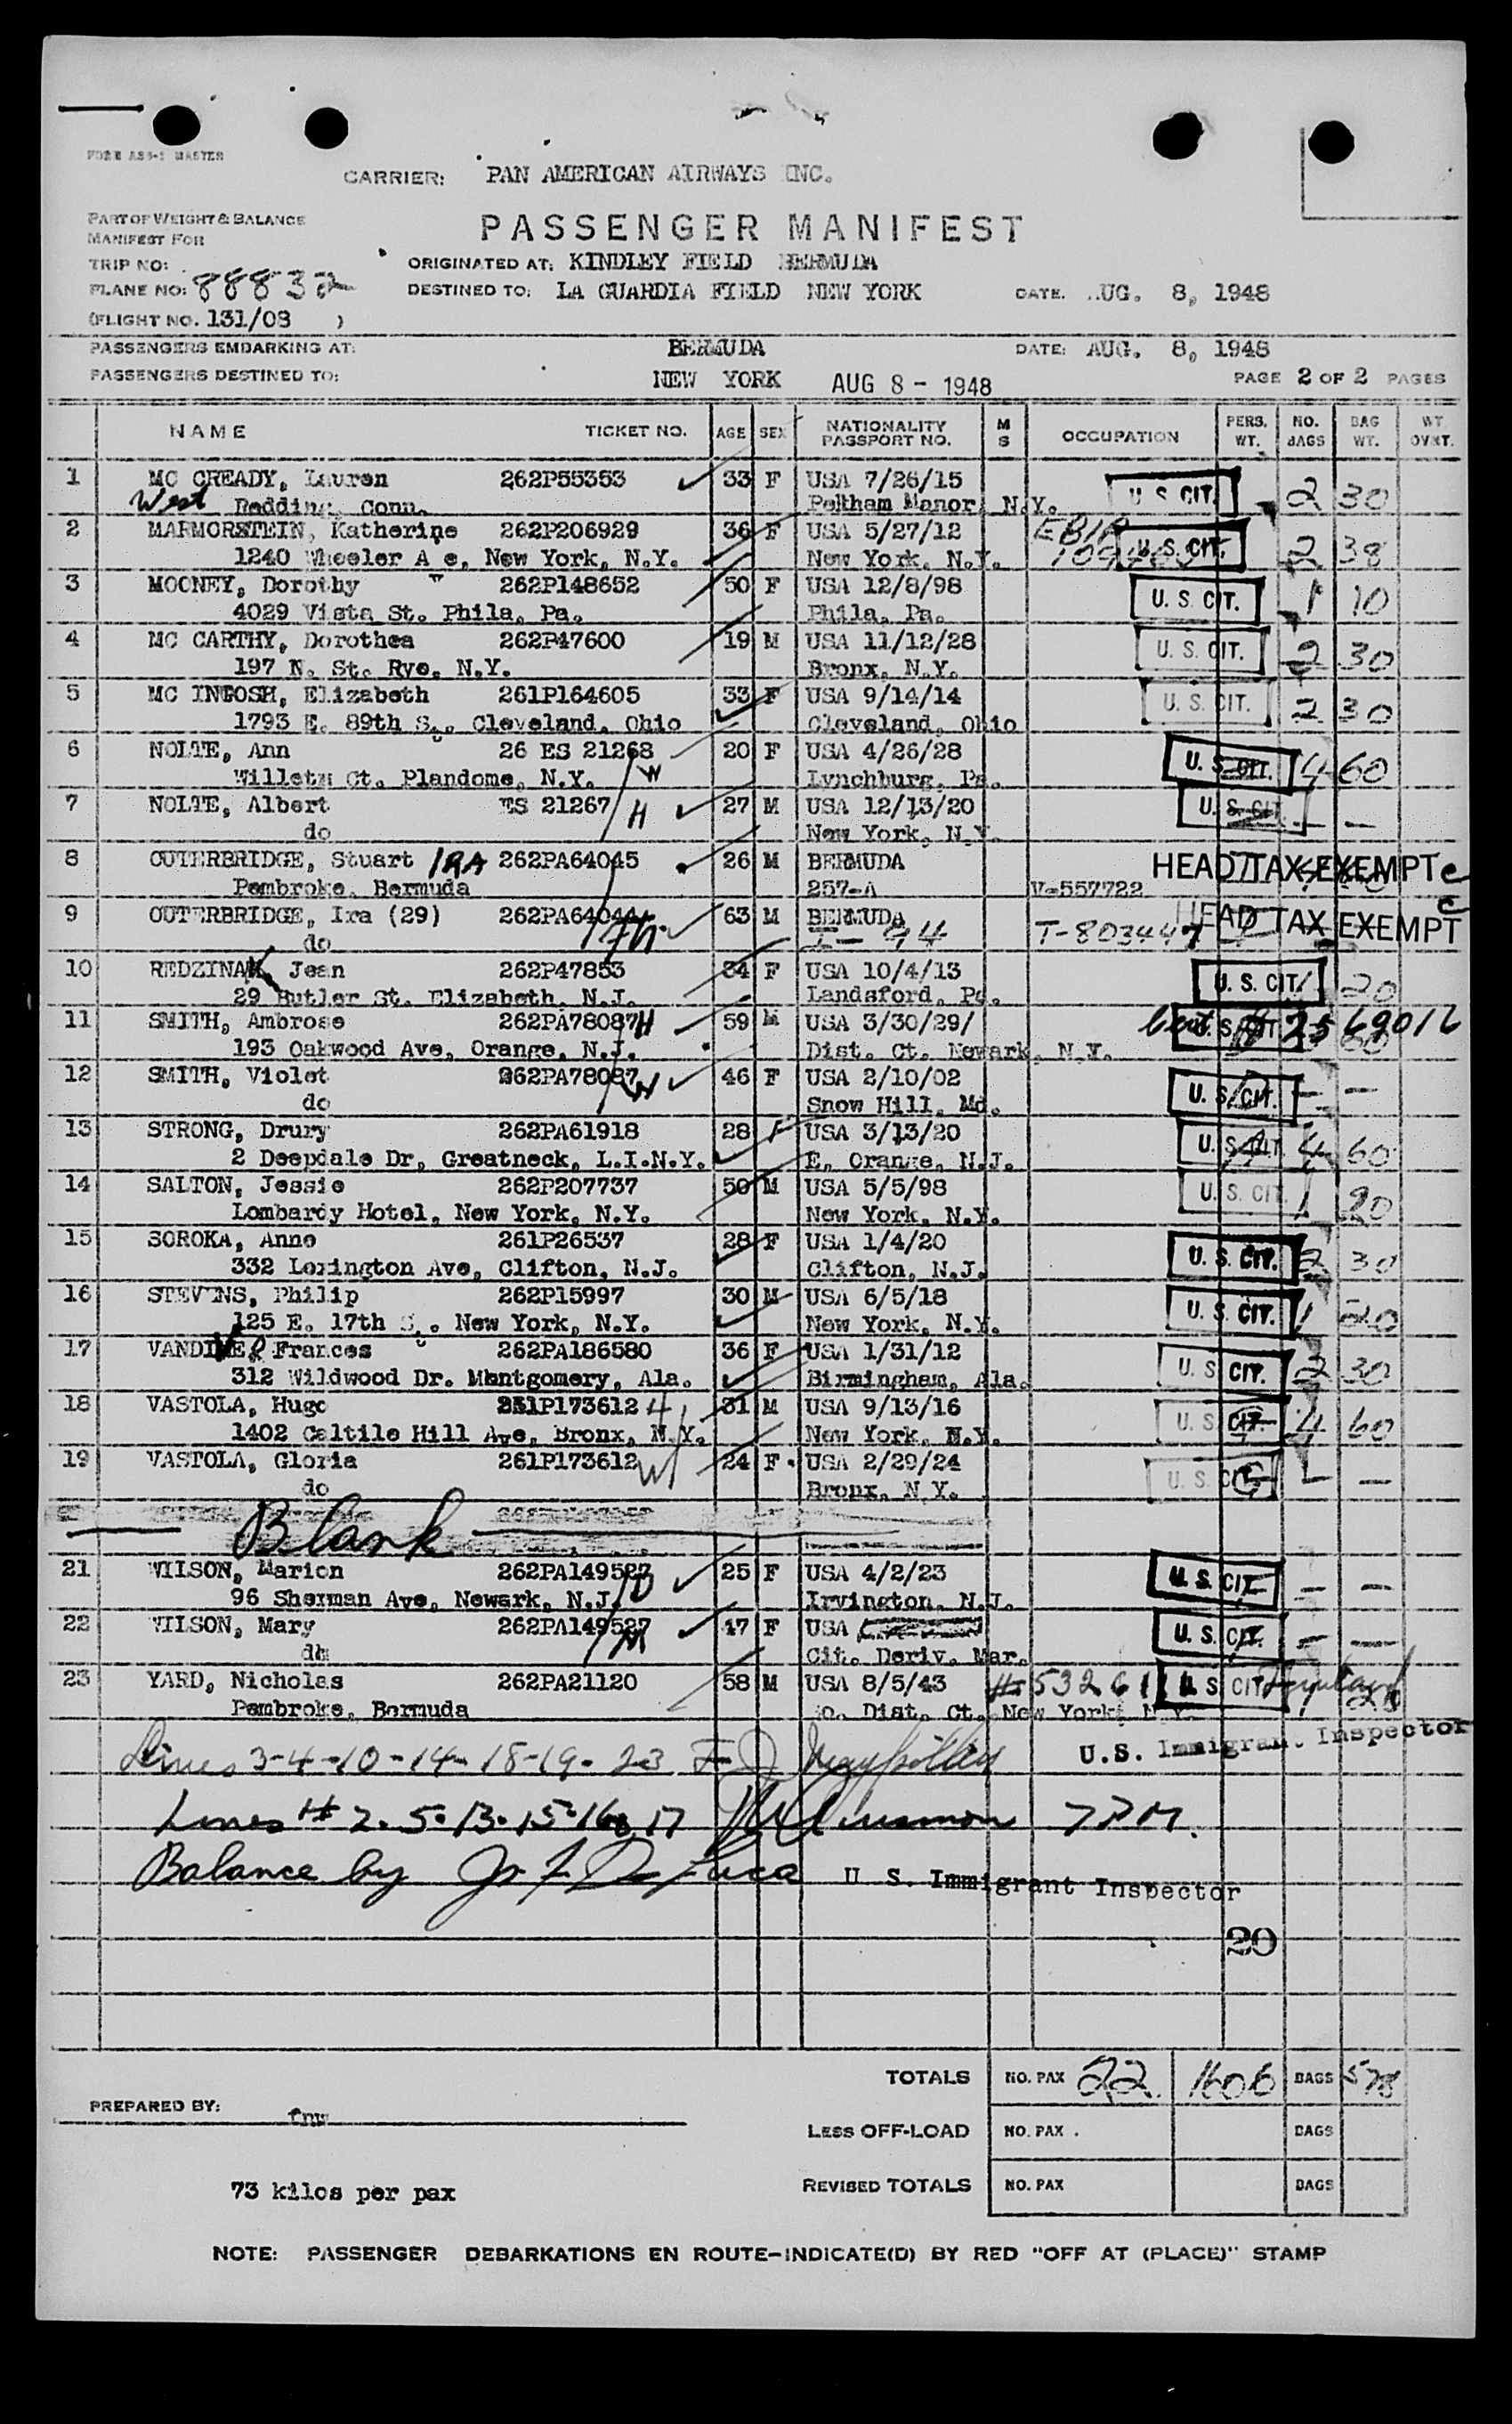 FORM AS5-1 MASTER
CARRIER: PAN AMERICAN AIRWAYS INC.
PART OF WEIGHT & BALANCE
MANIFEST FOR
PASSENGER MANIFEST
TRIP NO:
ORIGINATED AT: KINDLEY FIELD BERMUDA
PLANE NO: 88832
DESTINED TO: LA GUARDIA FIELD NEW YORK DATE. AUG. 8, 1948
(FLIGHT NO. 131/08 )
PASSENGERS EMBARKING AT: BERMUDA DATE: AUG. 8, 1948
PASSENGERS DESTINED TO: NEW YORK AUG 8 - 1948 PAGE 2 OF 2 PAGES
NAME TICKET NO. AGE SEX NATIONALITY PASSPORT NO. M S OCCUPATION PERS. WT. NO. BAGS BAG WT. WT OVWT.
1 MC CREADY, Lauren 262P55353 33 F USA 7/26/15 U S CIT. 2 30
West Redding, Conn. Pelham Manor, N.Y.
2 MARMORSTEIN, Katherine 262P206929 36 F USA 5/27/12 U. S. CIT. 2 38
1240 Wheeler A e, New York, N.Y. New York, N.Y.
3 MOONEY, Dorothy 262P148652 50 F USA 12/8/98 U. S. CIT. 1 10
4029 Vista St. Phila, Pa. Phila, Pa.
4 MC CARTHY, Dorothea 262P47600 19 M USA 11/12/28 U. S. CIT. 2 30
197 N. St. Rye, N.Y. Bronx, N.Y.
5 MC INTOSH, Elizabeth 261P164605 33 F USA 9/14/14 U. S. CIT. 2 30
1793 E. 89th S., Cleveland, Ohio Cleveland, Ohio
6 NOLTE, Ann 26 ES 21268 W 20 F USA 4/26/28 U. S. CIT. 4 60
Willets Ct. Plandome, N.Y. Lynchburg, Pa.
7 NOLTE, Albert ES 21267 H 27 M USA 12/13/20 U. S. CIT — —
do New York, N.Y.
8 OUTERBRIDGE, Stuart IRA 262PA64045 26 M BERMUDA HEAD TAX EXEMPT
Pembroke, Bermuda 257-A V-557722
9 OUTERBRIDGE, Ira (29) 262PA64044 63 M BERMUDA HEAD TAX EXEMPT
do I-94 T-803447
10 REDZINAK, Jean 262P47853 34 F USA 10/4/13 U. S. CIT. 1 20
29 Butler St. Elizabeth, N.J. Landsford, Pa.
11 SMITH, Ambrose 262PA78087 H 59 M USA 3/30/29/ Cert # 2569016
193 Oakwood Ave, Orange, N.J. Dist. Ct. Newark, N.Y.
12 SMITH, Violet 262PA78087 W 46 F USA 2/10/02 U. S. CIT. — —
do Snow Hill, Md.
13 STRONG, Drury 262PA61918 28 F USA 3/13/20 U. S. CIT. 4 60
2 Deepdale Dr, Greatneck, L.I.N.Y. E. Orange, N.J.
14 SALTON, Jessie 262P207737 50 M USA 5/5/98 U. S. CIT. 1 20
Lombardy Hotel, New York, N.Y. New York, N.Y.
15 SOROKA, Anne 261P26537 28 F USA 1/4/20 U. S. CIT. 2 30
332 Lexington Ave, Clifton, N.J. Clifton, N.J.
16 STEVENS, Philip 262P15997 30 M USA 6/5/18 U. S. CIT. 1 20
125 E. 17th S . New York, N.Y. New York, N.Y.
17 VANDIVER Frances 262PA186580 36 F USA 1/31/12 U. S CIT. 2 30
312 Wildwood Dr. Montgomery, Ala. Birmingham, Ala.
18 VASTOLA, Hugo 261P173612 H 31 M USA 9/13/16 U. S CIT. 4 60
1402 Caltile Hill Ave, Bronx, N.Y. New York, N.Y.
19 VASTOLA, Gloria 261P173612 W 24 F USA 2/29/24 U. S. CIT — —
do Bronx, N.Y.
Blank
21 WILSON, Marion 262PA149527 D 25 F USA 4/2/23 U. S. CIT. — —
96 Sherman Ave, Newark, N.J. Irvington, N.J.
22 WILSON, Mary 262PA149527 M 47 F USA U. S. CIT. — —
do Cit. Deriv. Mar.
23 YARD, Nicholas 262PA21120 58 M USA 8/5/43 #532611 U. S CIT
Pembroke, Bermuda So. Dist. Ct. New York, N.Y.
U.S. Immigrant Inspector
Lines 3-4-10-14-18-19-23
Lines # 2.5.13.15.16 & 17
Balance by U S. Immigrant Inspector
20
TOTALS NO. PAX 22 1606 BAGS 578
PREPARED BY: fnw
LESS OFF-LOAD NO. PAX . BAGS
73 kilos per pax REVISED TOTALS NO. PAX BAGS
NOTE: PASSENGER DEBARKATIONS EN ROUTE-INDICATE(D) BY RED "OFF AT (PLACE)" STAMP